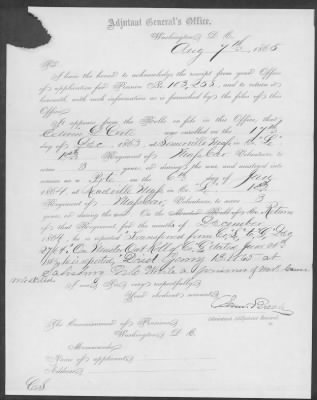 Adjutant General's Office,
Washington, D. C.
Aug 7th, 1865
Sir:
I have the honor to acknowledge the receipt from your Office
of application for Pension No. 103,255, and to return it
herewith, with such information as is furnished by the files of this
Office.
It appears from the Rolls on file in this Office, that
Edwin C. was enrolled on the 17th
day of Dec, 1863, at Somerville Mass in Co.
Regiment of Mass Cav Volunteers, to
serve 3 years, or during the war, and mustered
into service as a Pvt on the 6th day of Jany
1864, at Readville Mass in Co.
Regiment of Mass Cav, Volunteers, to serve 3
years, or during the war. On the Return
of that Regiment for the months of December
1864, he is reported "Transferred from Co. to G Dec
On Muster Out Roll of Co G dated June
he is reported "Died Jany 13 1865 at
Salisbury N.C. while a prisoner of war"
I am, Sir, very respectfully,
Your obedient servant,
Assistant Adjutant General.
The Commissioner of Pensions,
Washington, D. C.
Memoranda:
Name of applicant
Address